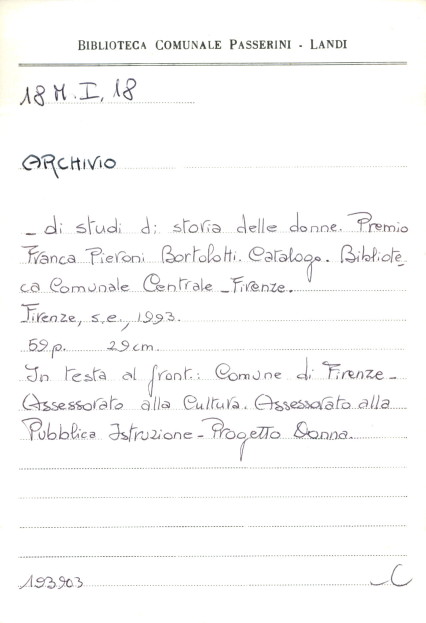 BIBLIOTECA COMUNALE PASSERINI - LANDI
18 M. I, 18
ARCHIVIO
- di studi di storia delle donne. Premio
Franca Pieroni Bortolotti. Catalogo. Bibliote
ca Comunale Centrale - Firenze.
Firenze, s.e., 1993.
59 p. 29 cm.
In testa al front.: Comune di Firenze -
Assessorato alla Cultura. Assessorato alla
Pubblica Istruzione - Progetto Donna.
193903